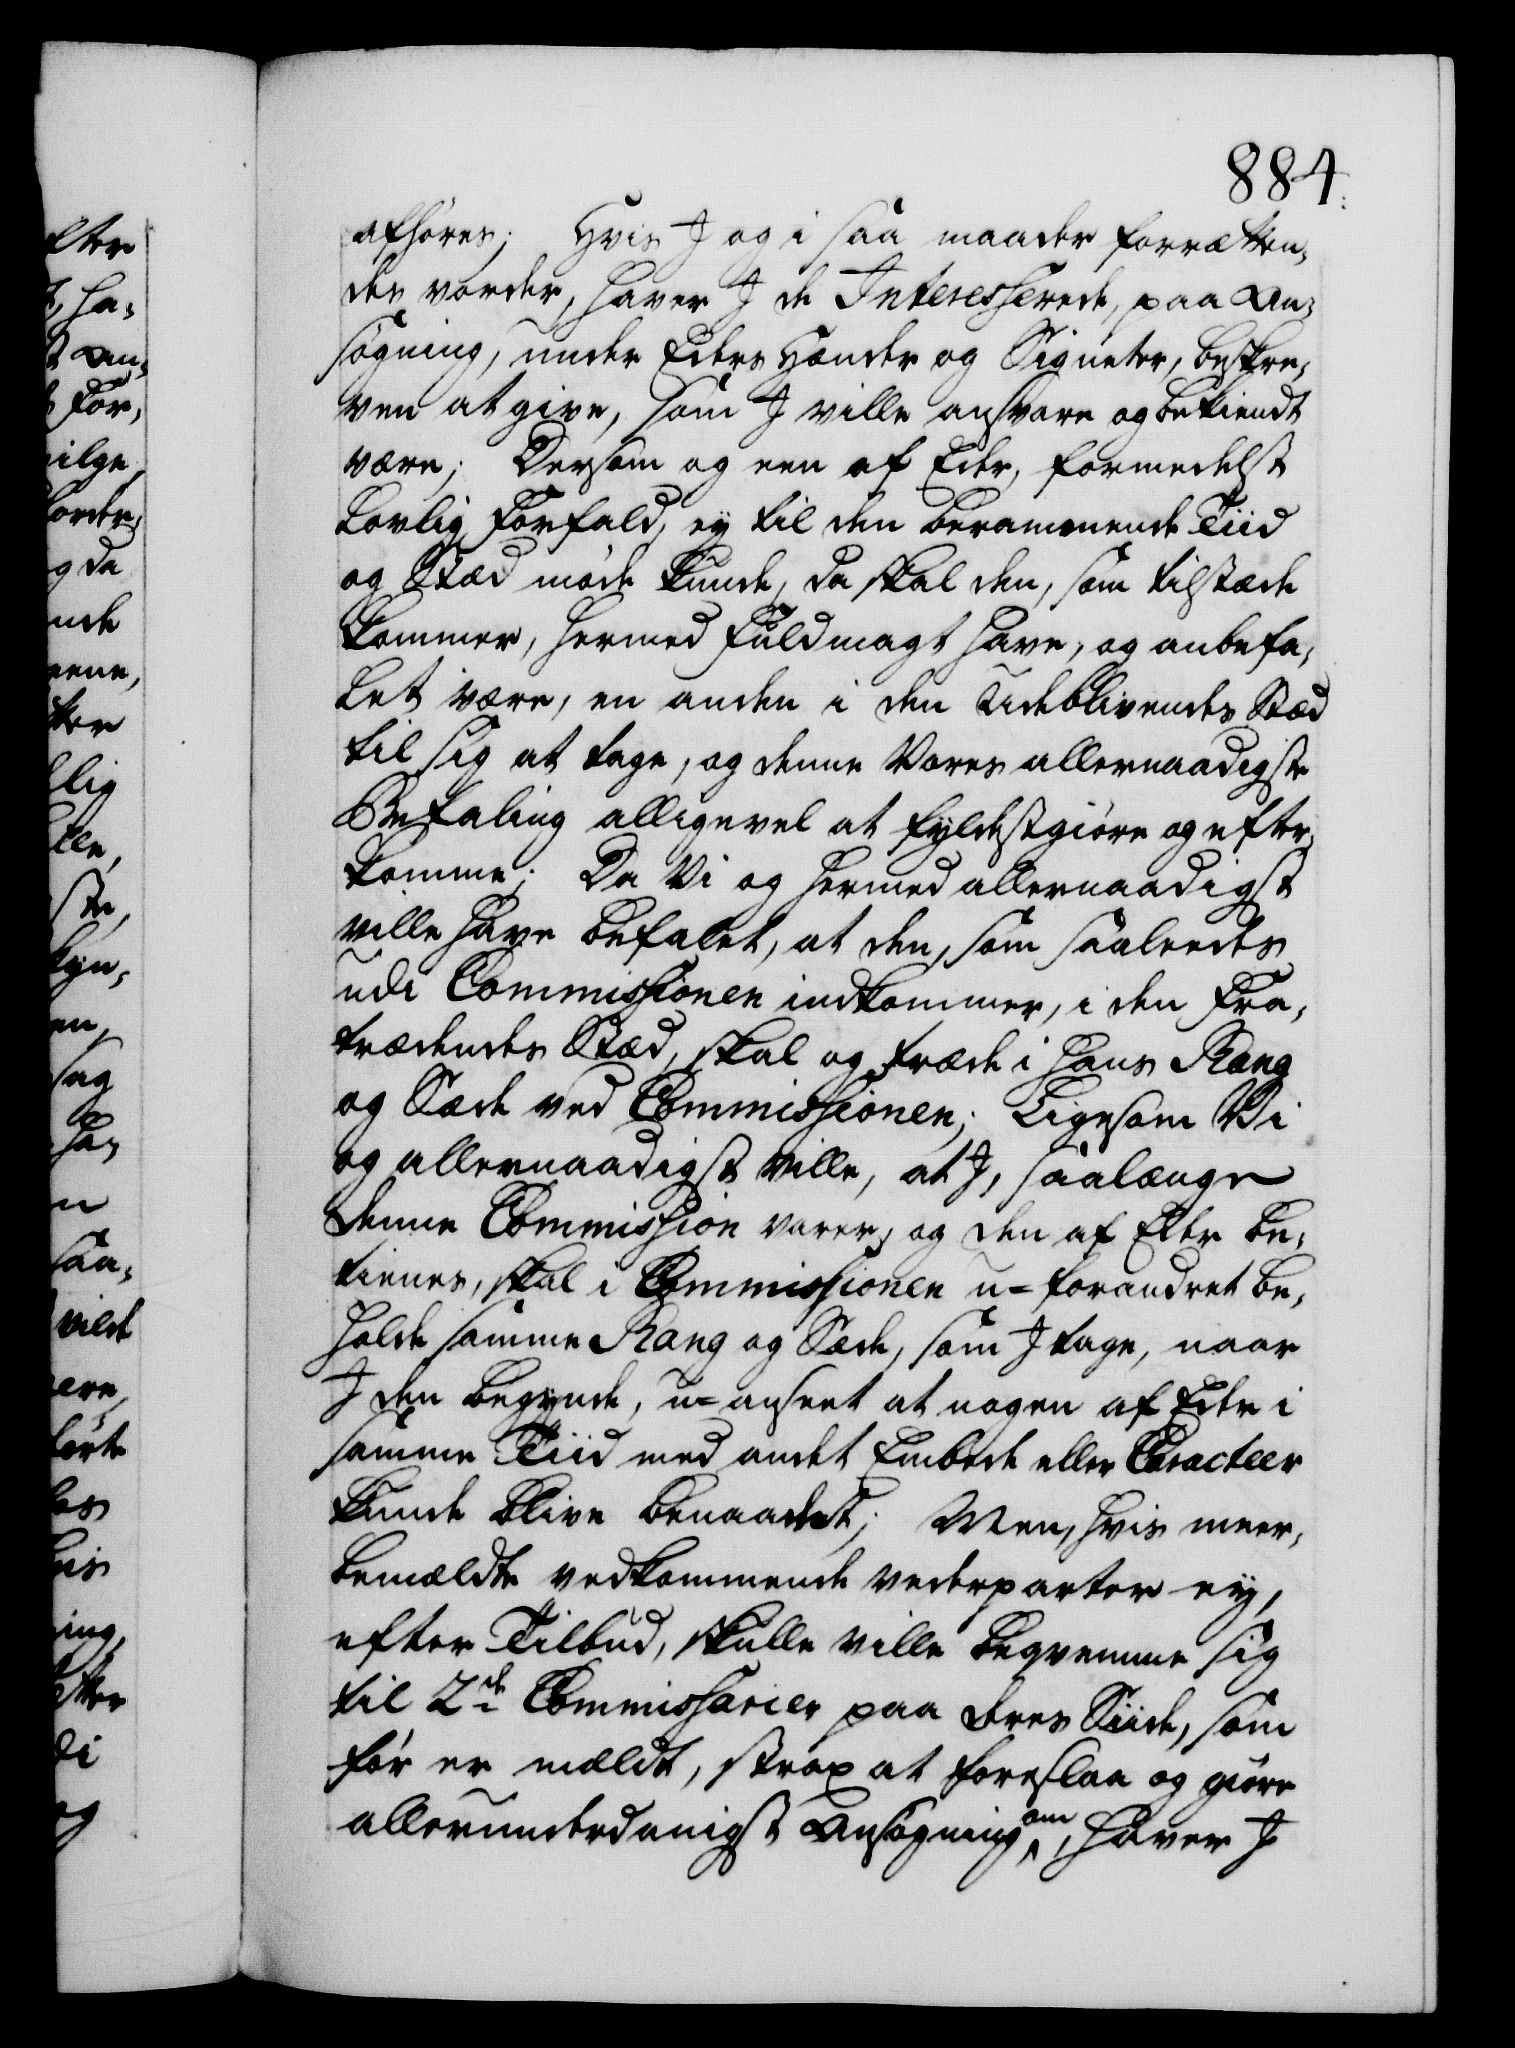 884.
afhøres; Hvis J og i saa maader forretten,
des vorder, haver J de Interesserede, paa An,
søgning, under Eders Hænder og Signeter, beskre,
ven at give, som J ville ansvare og bekiendt
være; Dersom og een af Eder, formedelst
Lovlig Forfald, ey til den berammende Tiid
og Stæd møde kunde, da skal den, som tilstæde
kommer, hermed Fuldmagt have, og anbefa,
let være, en anden i den Udeblivendes Stæd
til sig at tage, og denne Vores allernaadigste
Befaling alligevel at fyldestgiøre og efter,
komme; Da Vi og hermed allernaadigst
ville have befalet, at den, som saaleedes
udi Commissionen indkommer, i den Fra,
trædendes Stæd, skal og træde i hans Rang
og Sæde ved Commissionen; Ligesom Vi
og allernaadigst ville, at J, saalænge
denne Commission varer, og den af Eder be,
tienes, skal i Commissionen u=forandret be,
holde samme Rang og Sæde, som J tage, naar
J den begynde, u=anseet at nogen af Eder i
samme Tiid med andet Embede eller Caracteer
kunde blive benaadet; Men, hvis meer,
bemældte vedkommende vederparter ey,
efter Tilbud, skulle ville beqvemme sig
til 2de Commissarier paa deres Siide, som
før er mældt, strax at foreslaa og giøre
allerunderdanigst Ansøgning om, haver J
efter
, ha,
t An,
For,
ilge,
vorder,
g da
nde
eene,
ter
lig
lle,
ste,
kyn,
en,
sag
ha,
n
saa,
vilde
ere,
førte
los
his
ing,
etter
di
og